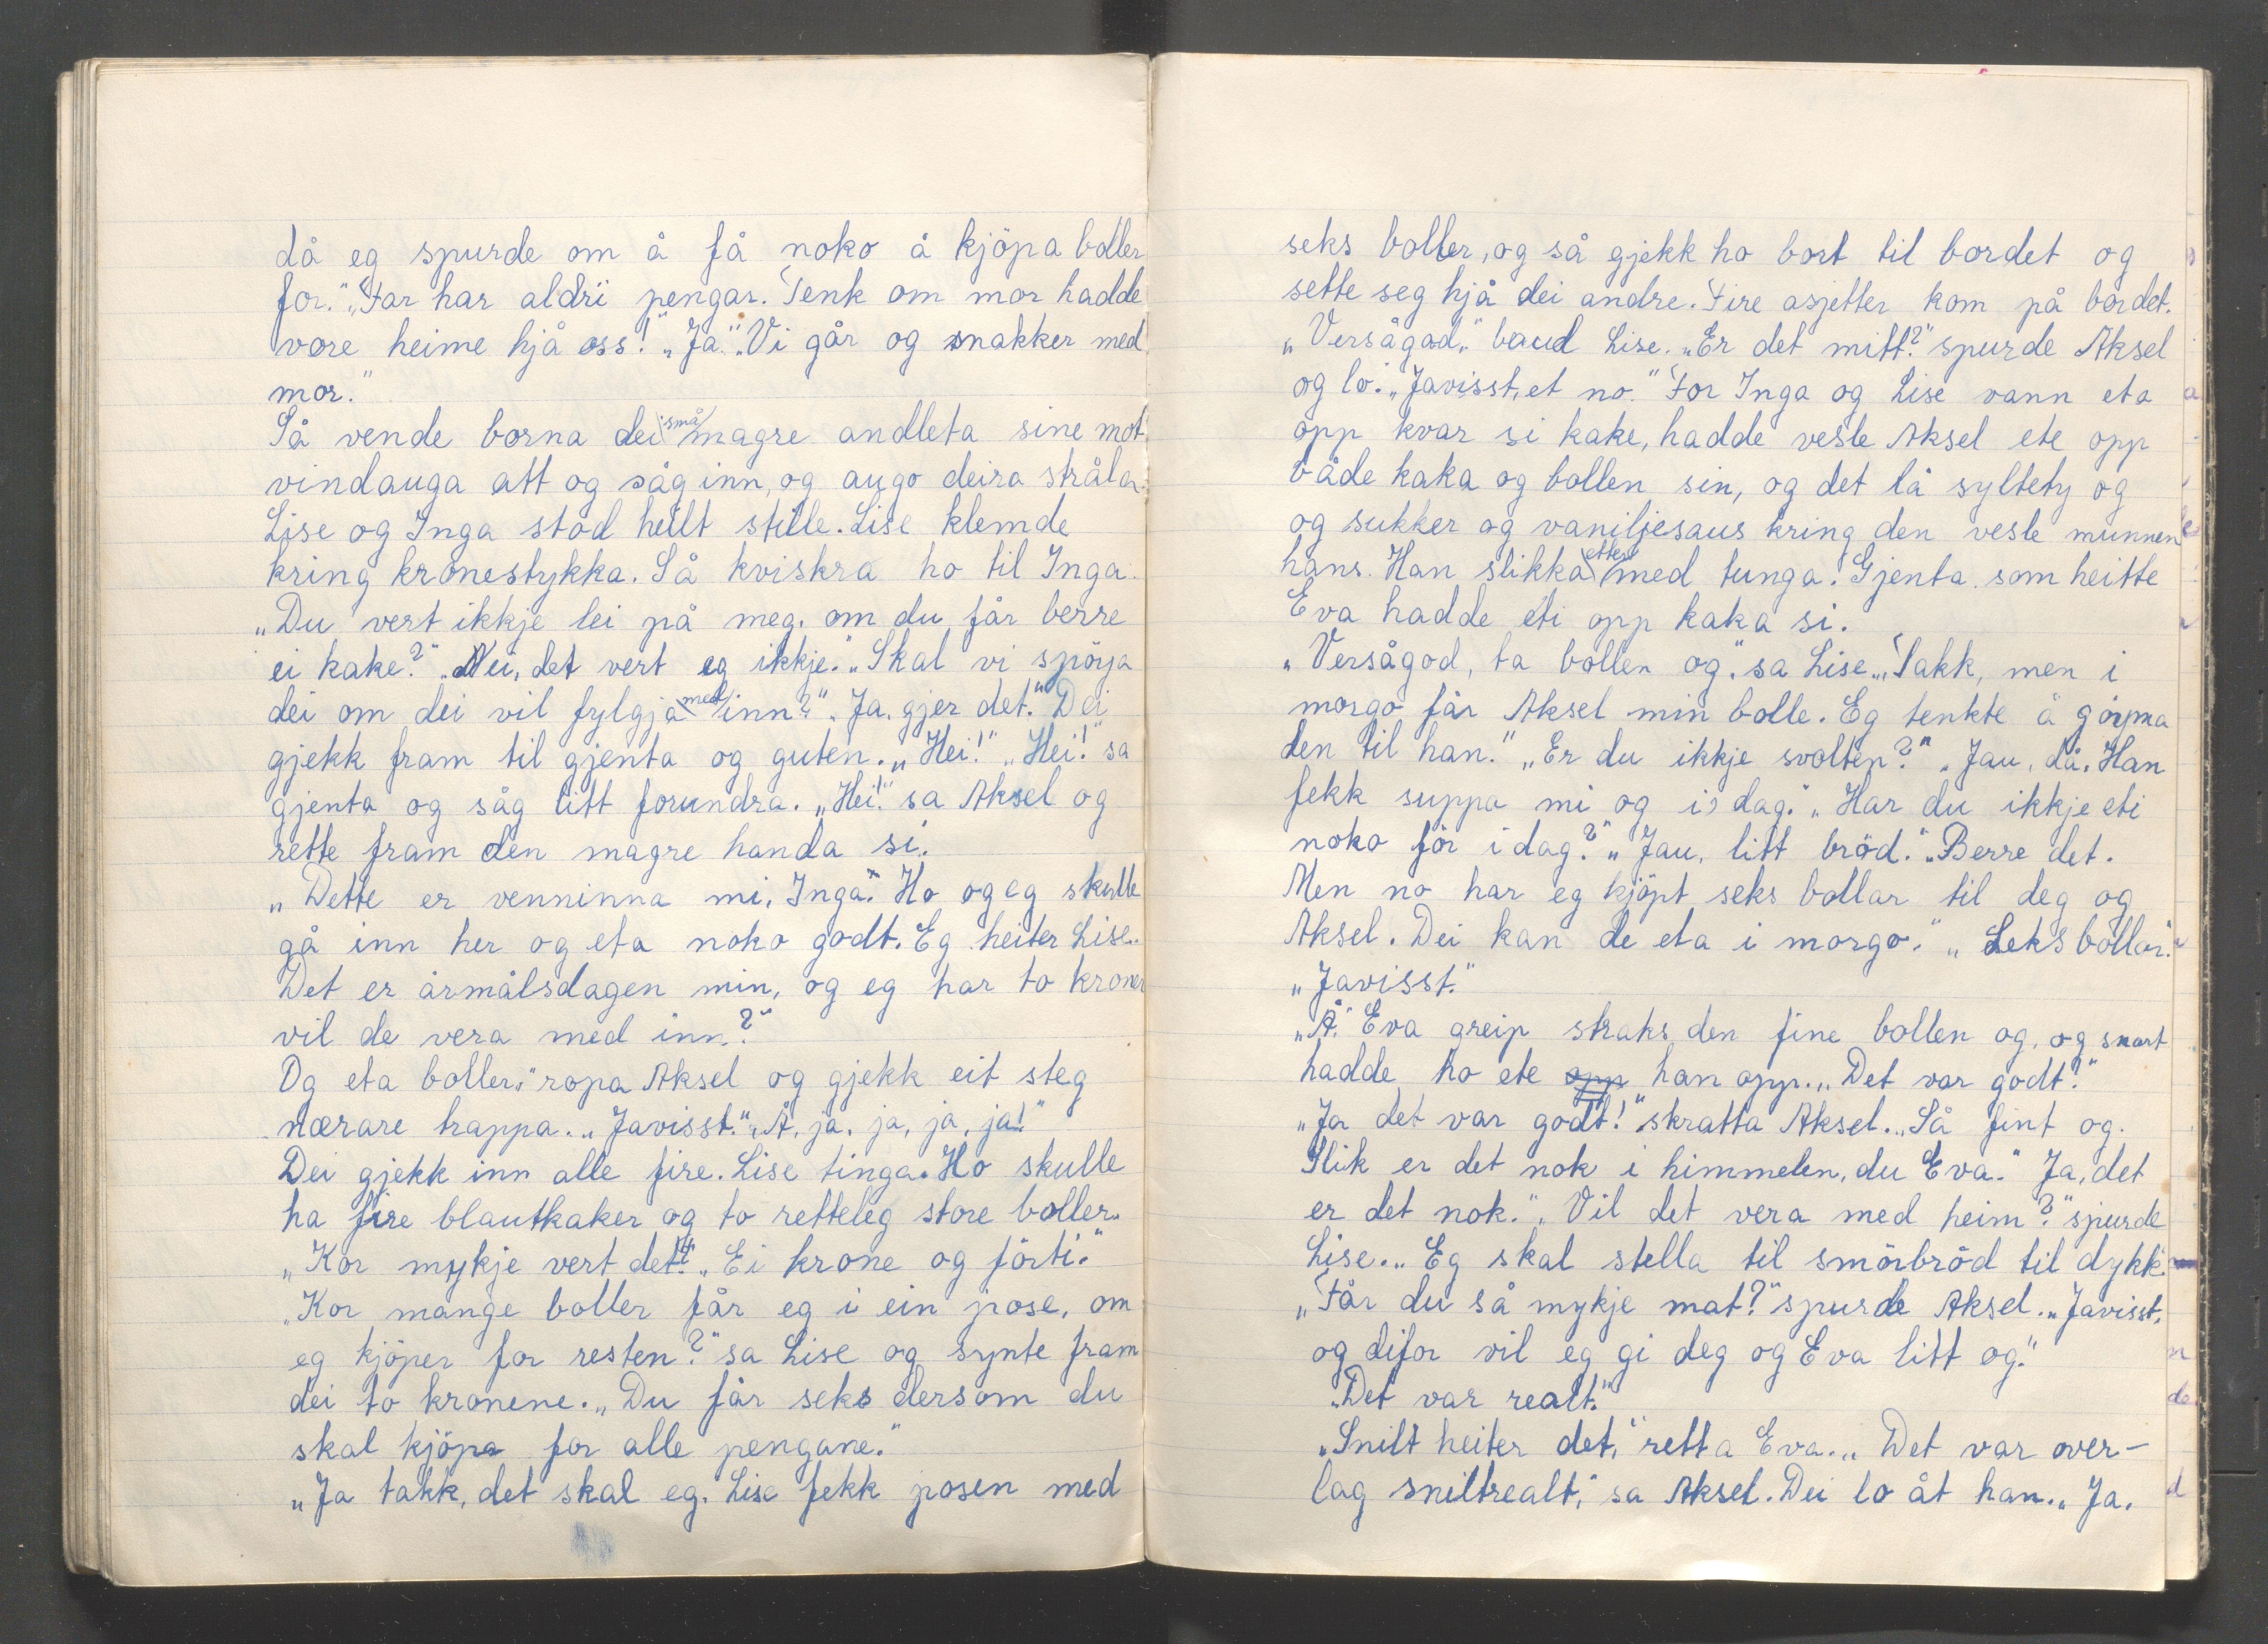 då eg spurde om å få noko å kjöpa boller
for." „Far har aldri pengar. Tenk om mor hadde
vore heime hjå oss!" „Ja." „Vi går og snakker med
mor."
Så vende borna dei små magre andleta sine mot
vindauga att og såg inn, og augo deira stråla.
Lise og Inga stod heilt stille. Lise klemde
kring kronestykka. Så kviskra ho til Inga.
„Du vert ikkje lei på meg, om du får berre
ei kake?" „Nei, det vert eg ikkje." „Skal vi spörja
dei om dei vil fylgja med inn?" „Ja, gjer det." Dei
gjekk fram til gjenta og guten. „Hei!" „Hei!" sa
gjenta og såg litt forundra. „Hei!" sa Aksel og
rette fram den magre handa si.
„Dette er venninna mi, Inga." Ho og eg skulle
gå inn her og eta noko godt. Eg heiter Lise.
Det er årmålsdagen min, og eg har to kroner
vil de vera med inn?"
Og eta boller," ropa Aksel og gjekk eit steg
nærare trappa. „Javisst." „Å, ja, ja, ja, ja!"
Dei gjekk inn alle fire. Lise tinga. Ho skulle
ha fire blautkaker og to retteleg store boller.
„Kor mykje vert det?" „Ei krone og förti."
„Kor mange boller får eg i ein pose, om
eg kjöper for resten?" sa Lise og synte fram
dei to kronene. „Du får seks dersom du
skal kjöpa for alle pengane."
„Ja takk, det skal eg. Lise fekk posen med
seks boller, og så gjekk ho bort til bordet og
sette seg hjå dei andre. Fire asjetter kom på bordet.
„Versågad," baud Lise. „Er det mitt?" spurde Aksel
og lo. „Javisst, et no." For Inga og Lise vann eta
opp kvar si kake, hadde vesle Aksel ete opp
både kaka og bollen sin, og det lå syltety og
og sukker og vaniljesaus kring den vesle munnen
hans. Han slikka etter med tunga. Gjenta som heitte
Eva hadde eti opp kaka si.
„Versågod, ta bollen og," sa Lise. „Takk, men i
morgo får Aksel min bolle. Eg tenkte å göyma
den til han." „Er du ikkje svolten?" „Jau, då. Han
fekk suppa mi og i dag." „Har du ikkje eti
noko för i dag?" „Jau, litt bröd." „Berre det.
Men no har eg kjöpt seks bollar til deg og
Aksel. Dei kan de eta i morgo." „Seks bollar."
„Javisst."
„Å." Eva greip straks den fine bollen og, og snart
hadde ho ete opp han opp. „Det var godt."
„Ja det var godt!" skratta Aksel. „Så fint og.
Slik er det nok i himmelen, du Eva." Ja, det
er det nok." „Vil det vera med heim?" spurde
Lise. „Eg skal stella til smörbröd til dykk.
„Får du så mykje mat?" spurde Aksel. „Javisst,
og difor vil eg gi deg og Eva litt og."
„Det var realt."
„Snilt heiter det," retta Eva. „Det var over-
lag sniltrealt," sa Aksel. Dei lo åt han. „Ja.